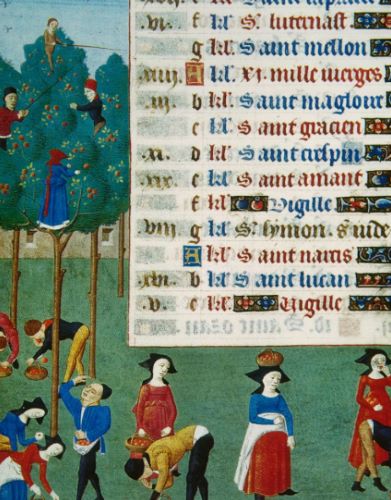 vi. f kl. St. luternast.
g kl. Saint mellon
xiiii A kl. xi. mille vierges
iii. b kl. Saint magloire
c kl. Saint gracien
xi. d kl. Saint crespin
xix e kl. Saint amant
f kl. Vigille
viii g kl. St. symon. S. iude
A kl. Saint narcis
xvi. b kl. Saint lucan
v. c kl. Vigille